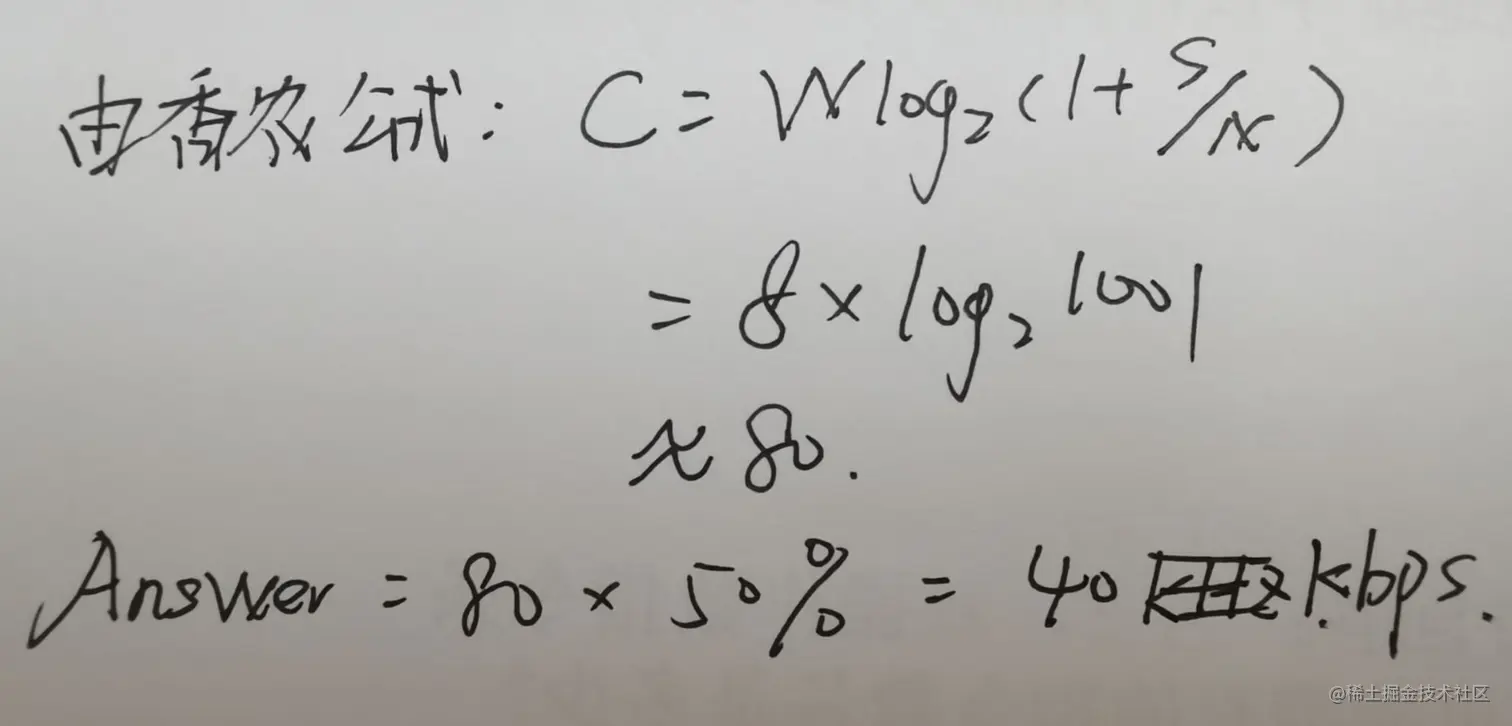 由香农公式: C = W log₂(1+S/N)
= 8 × log₂ 1001
≈ 80.
Answer = 80 × 50% = 40 kbps.
@稀土掘金技术社区